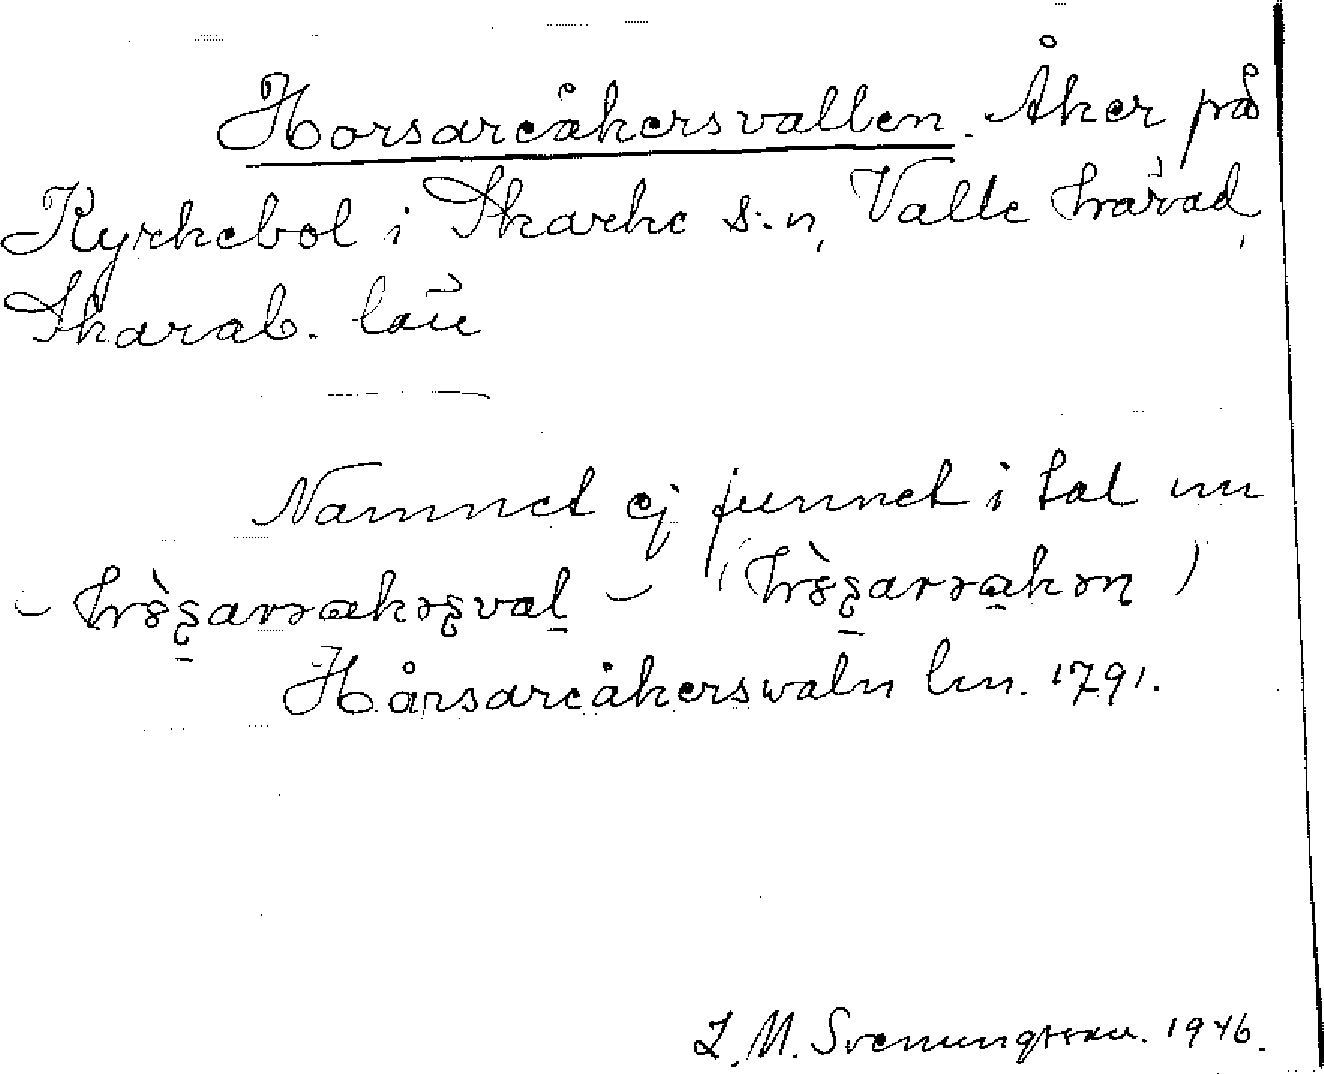 Horsareåkersvallen. Åker på
Kyrkebol i Skarke s:n, Valle härad,
Skarab. län
Namnet ej funnet i tal nu
Hårsareåkerswaln lm. 1791.
L. M. Svenungsson. 1946.